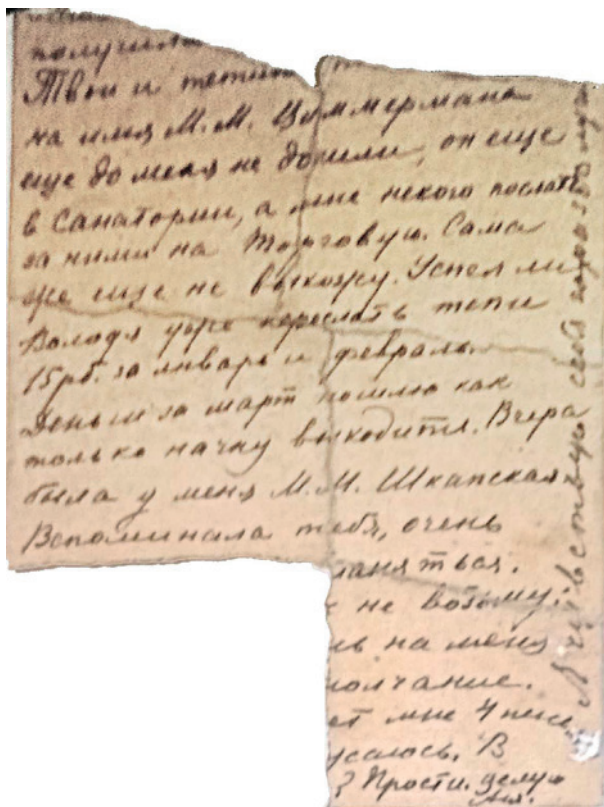 получила
Твои и тетин
на имя М. М. Циммермана
еще до меня не дошли, он еще
в Санатории, а мне некого послать
за ними на Торговую. Сама
же еще не выхожу. Успел ли
Володя уже переслать тети
15 рб. за январь и февраль.
Деньги за март пошлю как
только начну выходить. Вчера
была у меня М. М. Шкапская
Вспоминала тебя, очень
ланяться.
не возьму:
на меня
молчание.
ет мне 4
усалось. В
? Прости. Целую
Чувствую себя гораздо